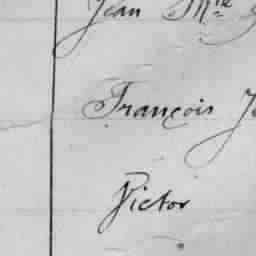 Jean Mie
François
Victor